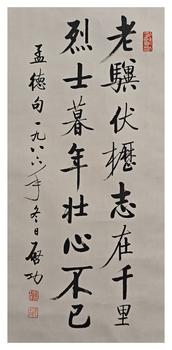 老驥伏櫪志在千里
烈士暮年壯心不已
孟德句一九八六年冬日啟功